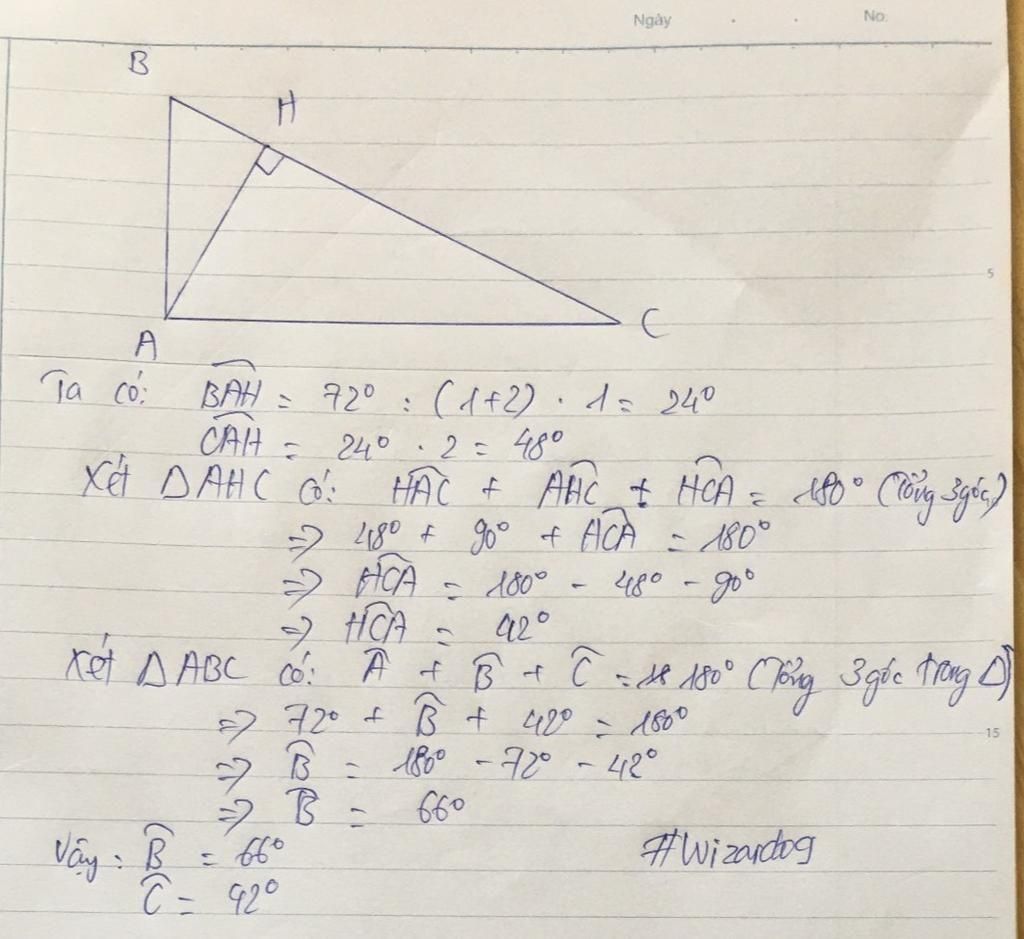 Ngày No.
B
H
5
C
A
Ta có: B̂AH = 72° : (1+2) . 1 = 24°
ĈAH = 24° . 2 = 48°
Xét ΔAHC có: HÂC + AĤC + HĈA = 180° (Tổng 3 góc)
=> 48° + 90° + ACA = 180°
=> HĈA = 180° - 48° - 90°
=> HĈA = 42°
Xét ΔABC có: Â + B̂ + Ĉ = 180° (Tổng 3 góc trong Δ)
=> 72° + B̂ + 42° = 180°
15
=> B̂ = 180° - 72° - 42°
=> B̂ = 66°
Vậy: B̂ = 66°
#Wizardog
Ĉ = 42°